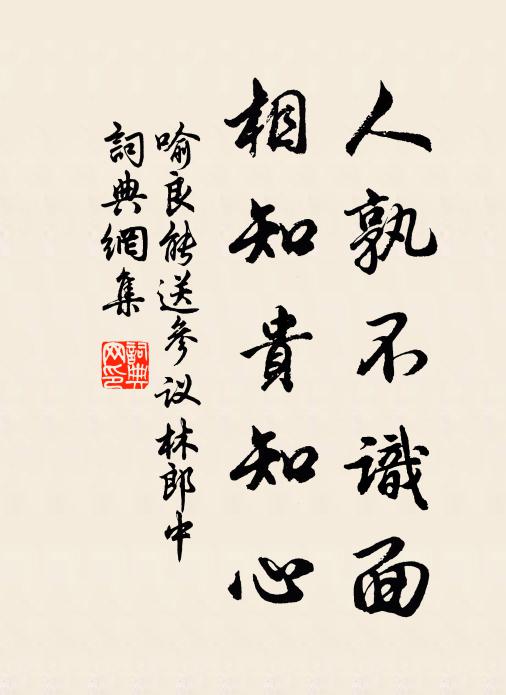 人孰不識面
相知貴知心
喻良能送參议林郎中
詞典網集
詞典
网印